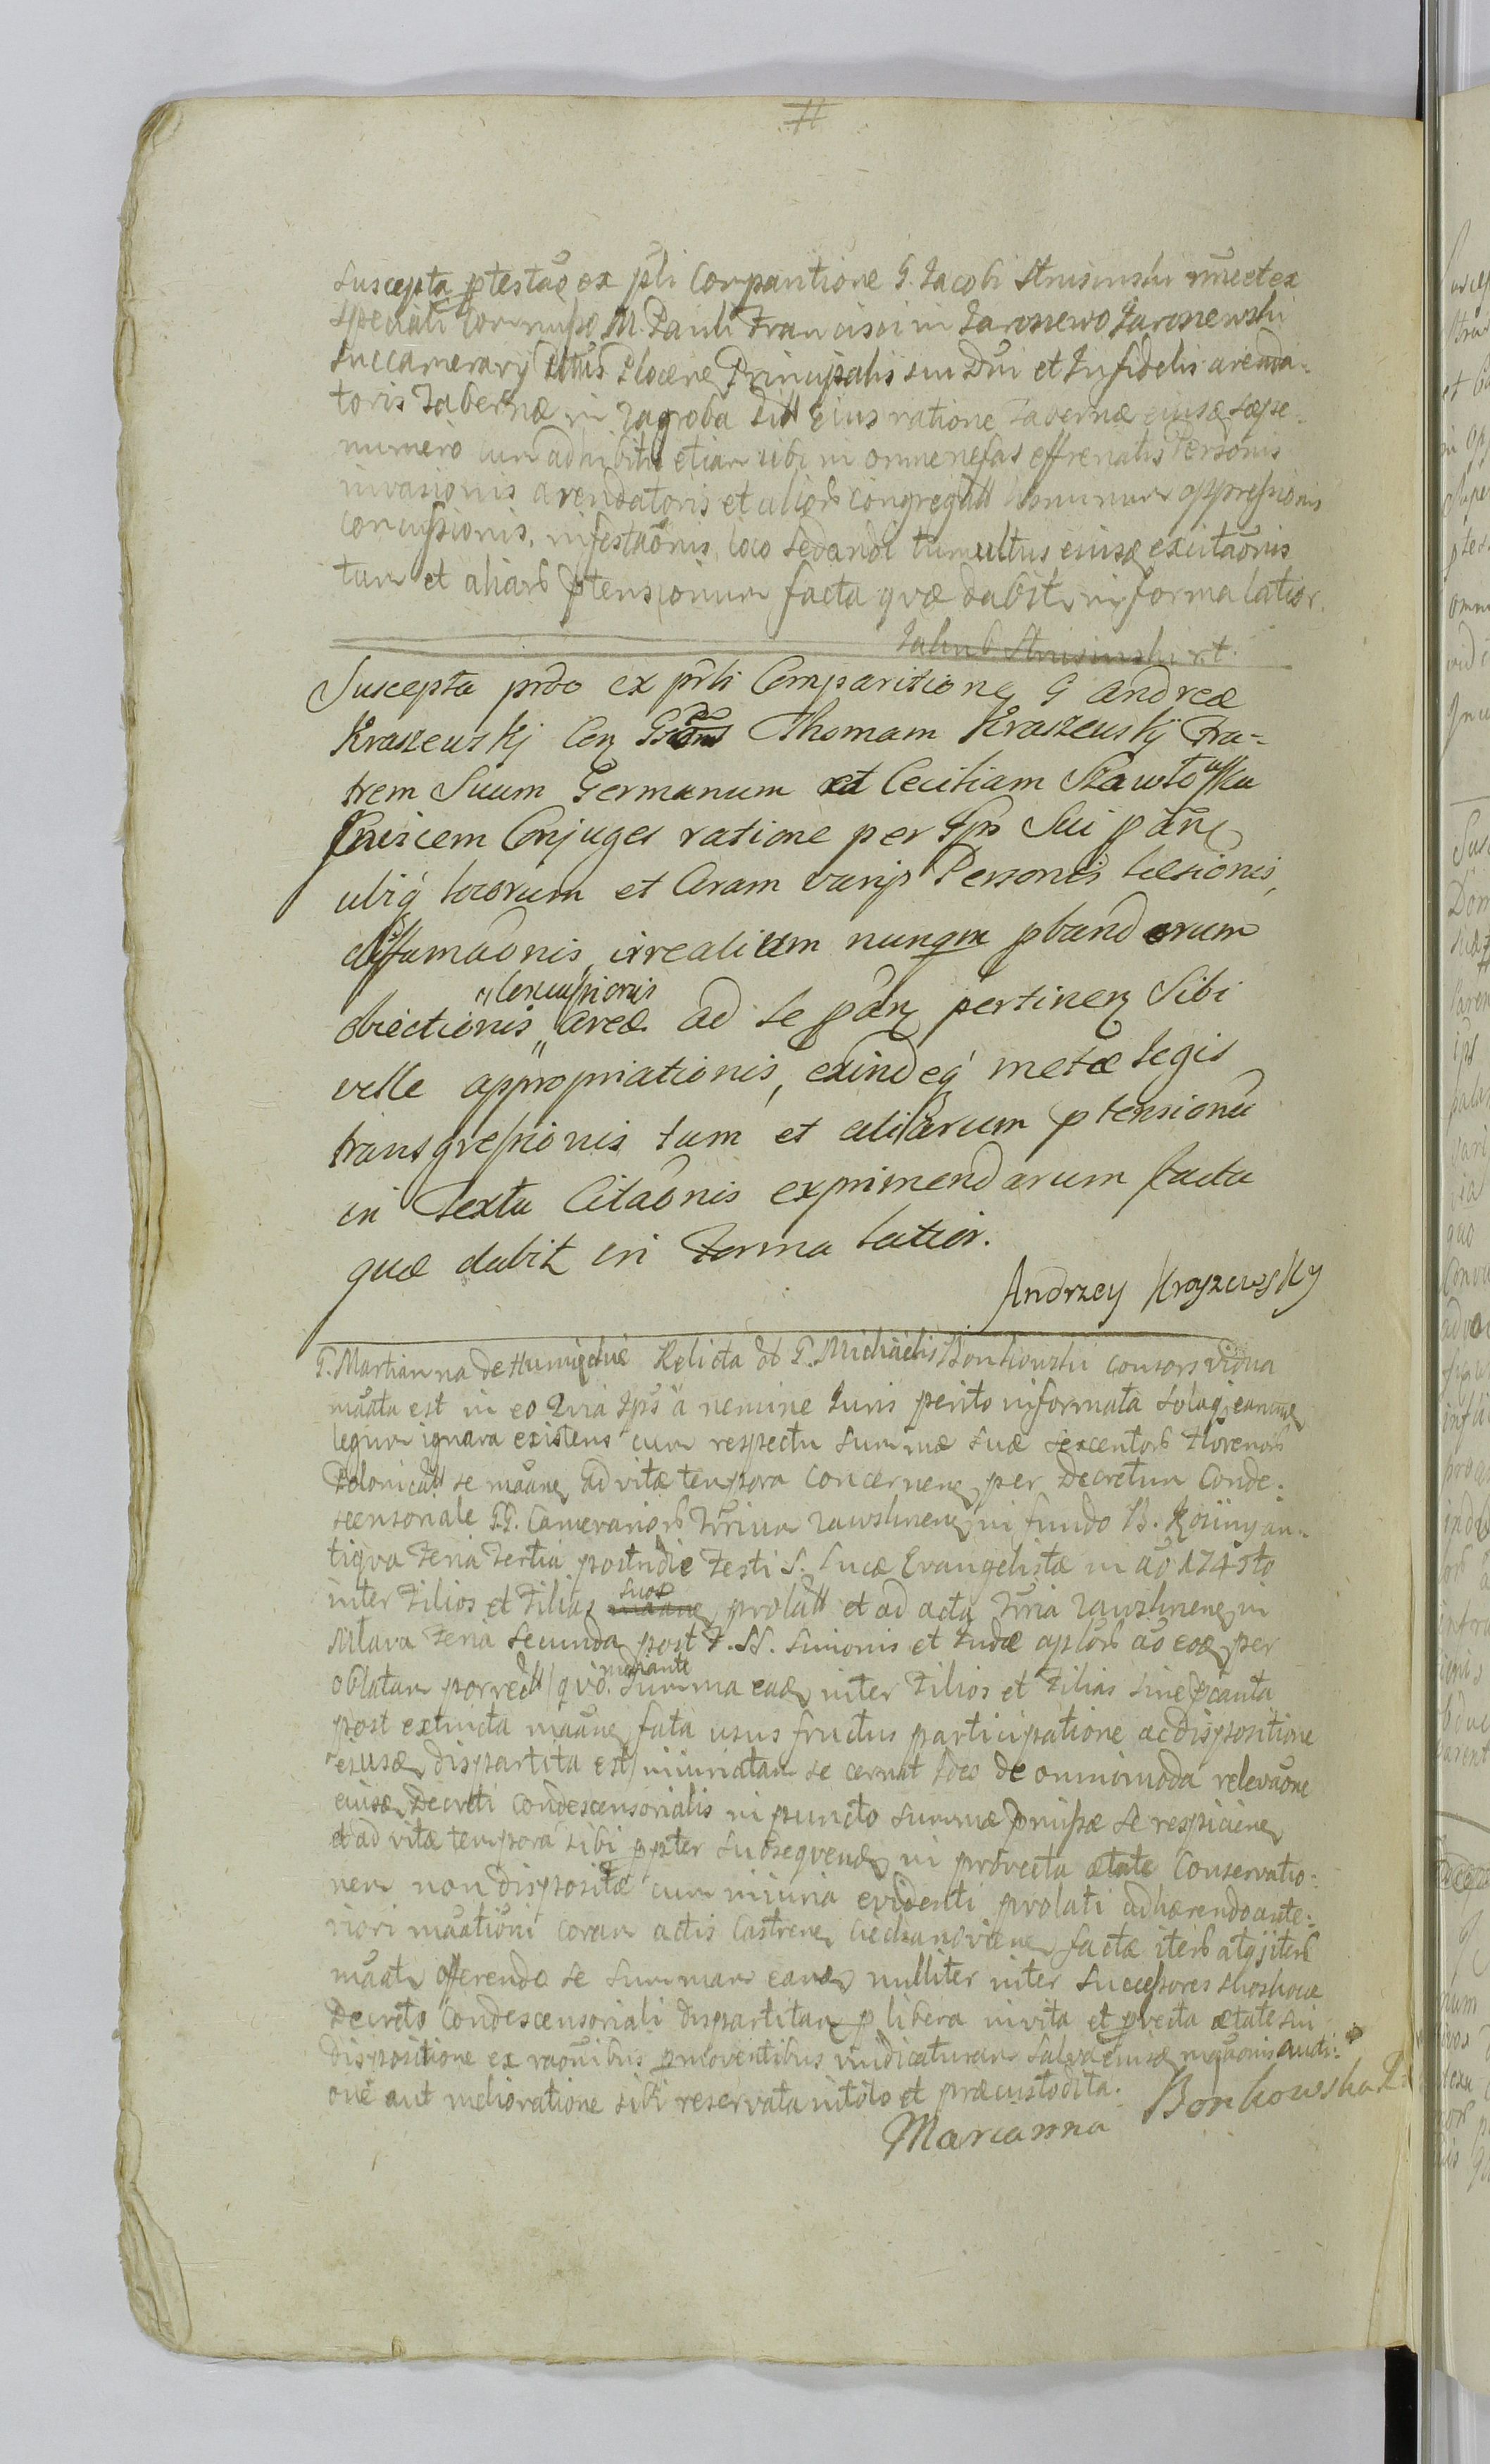 #
suscepta ptestao ex psli Comparitione G. Jacobi Strusinski et ex
speciali Commisso M. Pauli Francisci in Jaroszewo Jaroszewski
Succamerarij Plocen Principalis sui Dni et Infidelis arenda-
toris Tabernæ in Zagroba Sitt Eius ratione Tabernæ eiusd sæpe-
numero cum adhibitis etiam sibi in omne nefas effrenatis Personis
invasionis arendatoris et aliorb congregatt hominum oppressionis
concussionis, infestaonis, loco sedandi tumultus eiusd excitaonis
tum et aliarb ptensionum facta qvæ dabit in forma latior.
Jakub Strusinski
Suscepta prdo ex prti Comparitione G Andreæ
Kraszewskj Con Thomam Kraszewskij Fra-
trem Suum Germanum et Ceciliam
Invicem Conjuges ratione per Ips Sui pan
ubiq locorum et Coram varijs Personis læsionis,
diffamaonis, irrealium nunqm pbandorum
obiectionis, "Concussionis areæ ad se pan pertinen Sibi
velle appropriationis, exindeq metæ legis
transgressionis tum et aliarum ptensionu
in Textu Citaonis exprimendarum facta
quæ dabit in Forma latior.
Andrzey Kraszewsky
G. Martianna de Humięckie Relicta ob G. Michaelis Bonkowski consors vidua
maata est in eo Qvia Ips a nemine Juris perito informata
legum ignara existens cum respectu summæ suæ sexcentorb Florenorb
Polonicatt se maane ad vitæ tempora concernen per Decretum Conde-
scensoriale GG. Camerariorb Trrium Zawskrnen in fundo B. Kosiny an-
tiqva Feria Tertia postridie Festi S. Lucæ Evangelistæ in ao 1745to
inter Filios et Filias suos prolatt et ad acta Trria Zawskrnen in
Mlava Feria Secunda post F. SS. Simonis et Judæ aplorb ao eod per
oblatam porrectt qvo. mediante Summa eadq inter Filios et Filias sine pcauta
post extincta maane fata usus fructus participatione ac dispositione
eiusd dispartita est iniuriatam se cernat Ideo de omnimoda relevaone
eiusd Decreti Condescensorialis in puncto summæ pmissæ se respicien
et ad vitæ tempora sibi ppter subseqvend in provecta ætate Conservatio-
nem non dispositæ cum iniuria evidenti prolati adhærendo ante-
riori maationi coram actis Castren Ciechanovien factæ iterb atqj iterb
maatr offerendo se summam eand nulliter inter successores
Decreto Condescensoriali dispartitam p libera in vita et pvecta ætate sui
dispositione ex raonibus pmoventibus vindicaturam Salva eiusd maaonis aucti-
one aut melioratione sibi reservata in toto et præcustodita.
Marianna Bonkowska